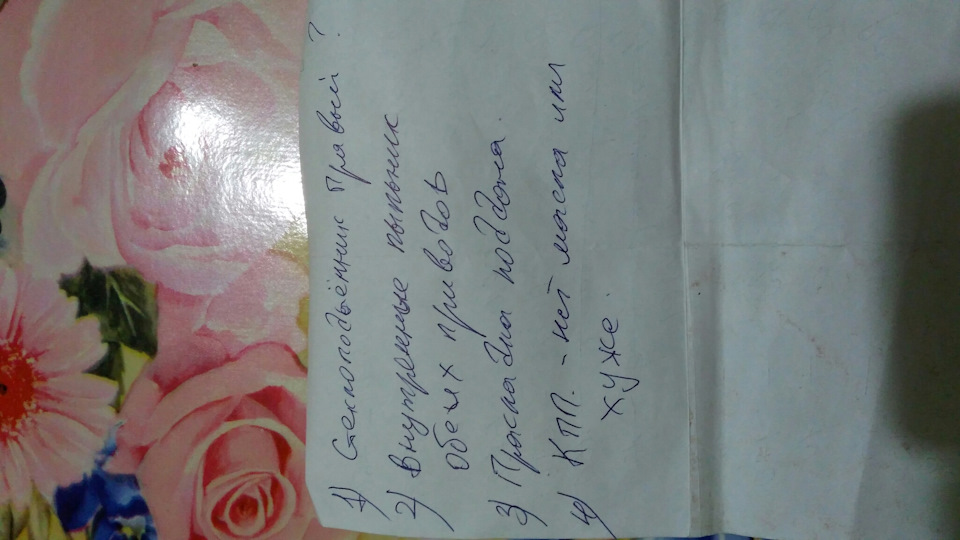 1) Стеклоподъённик Правый ?
2) Внутренные пыльник
обеих приводов
3) Прокладка поддона.
4) КПП. - нет масла или
хуже.